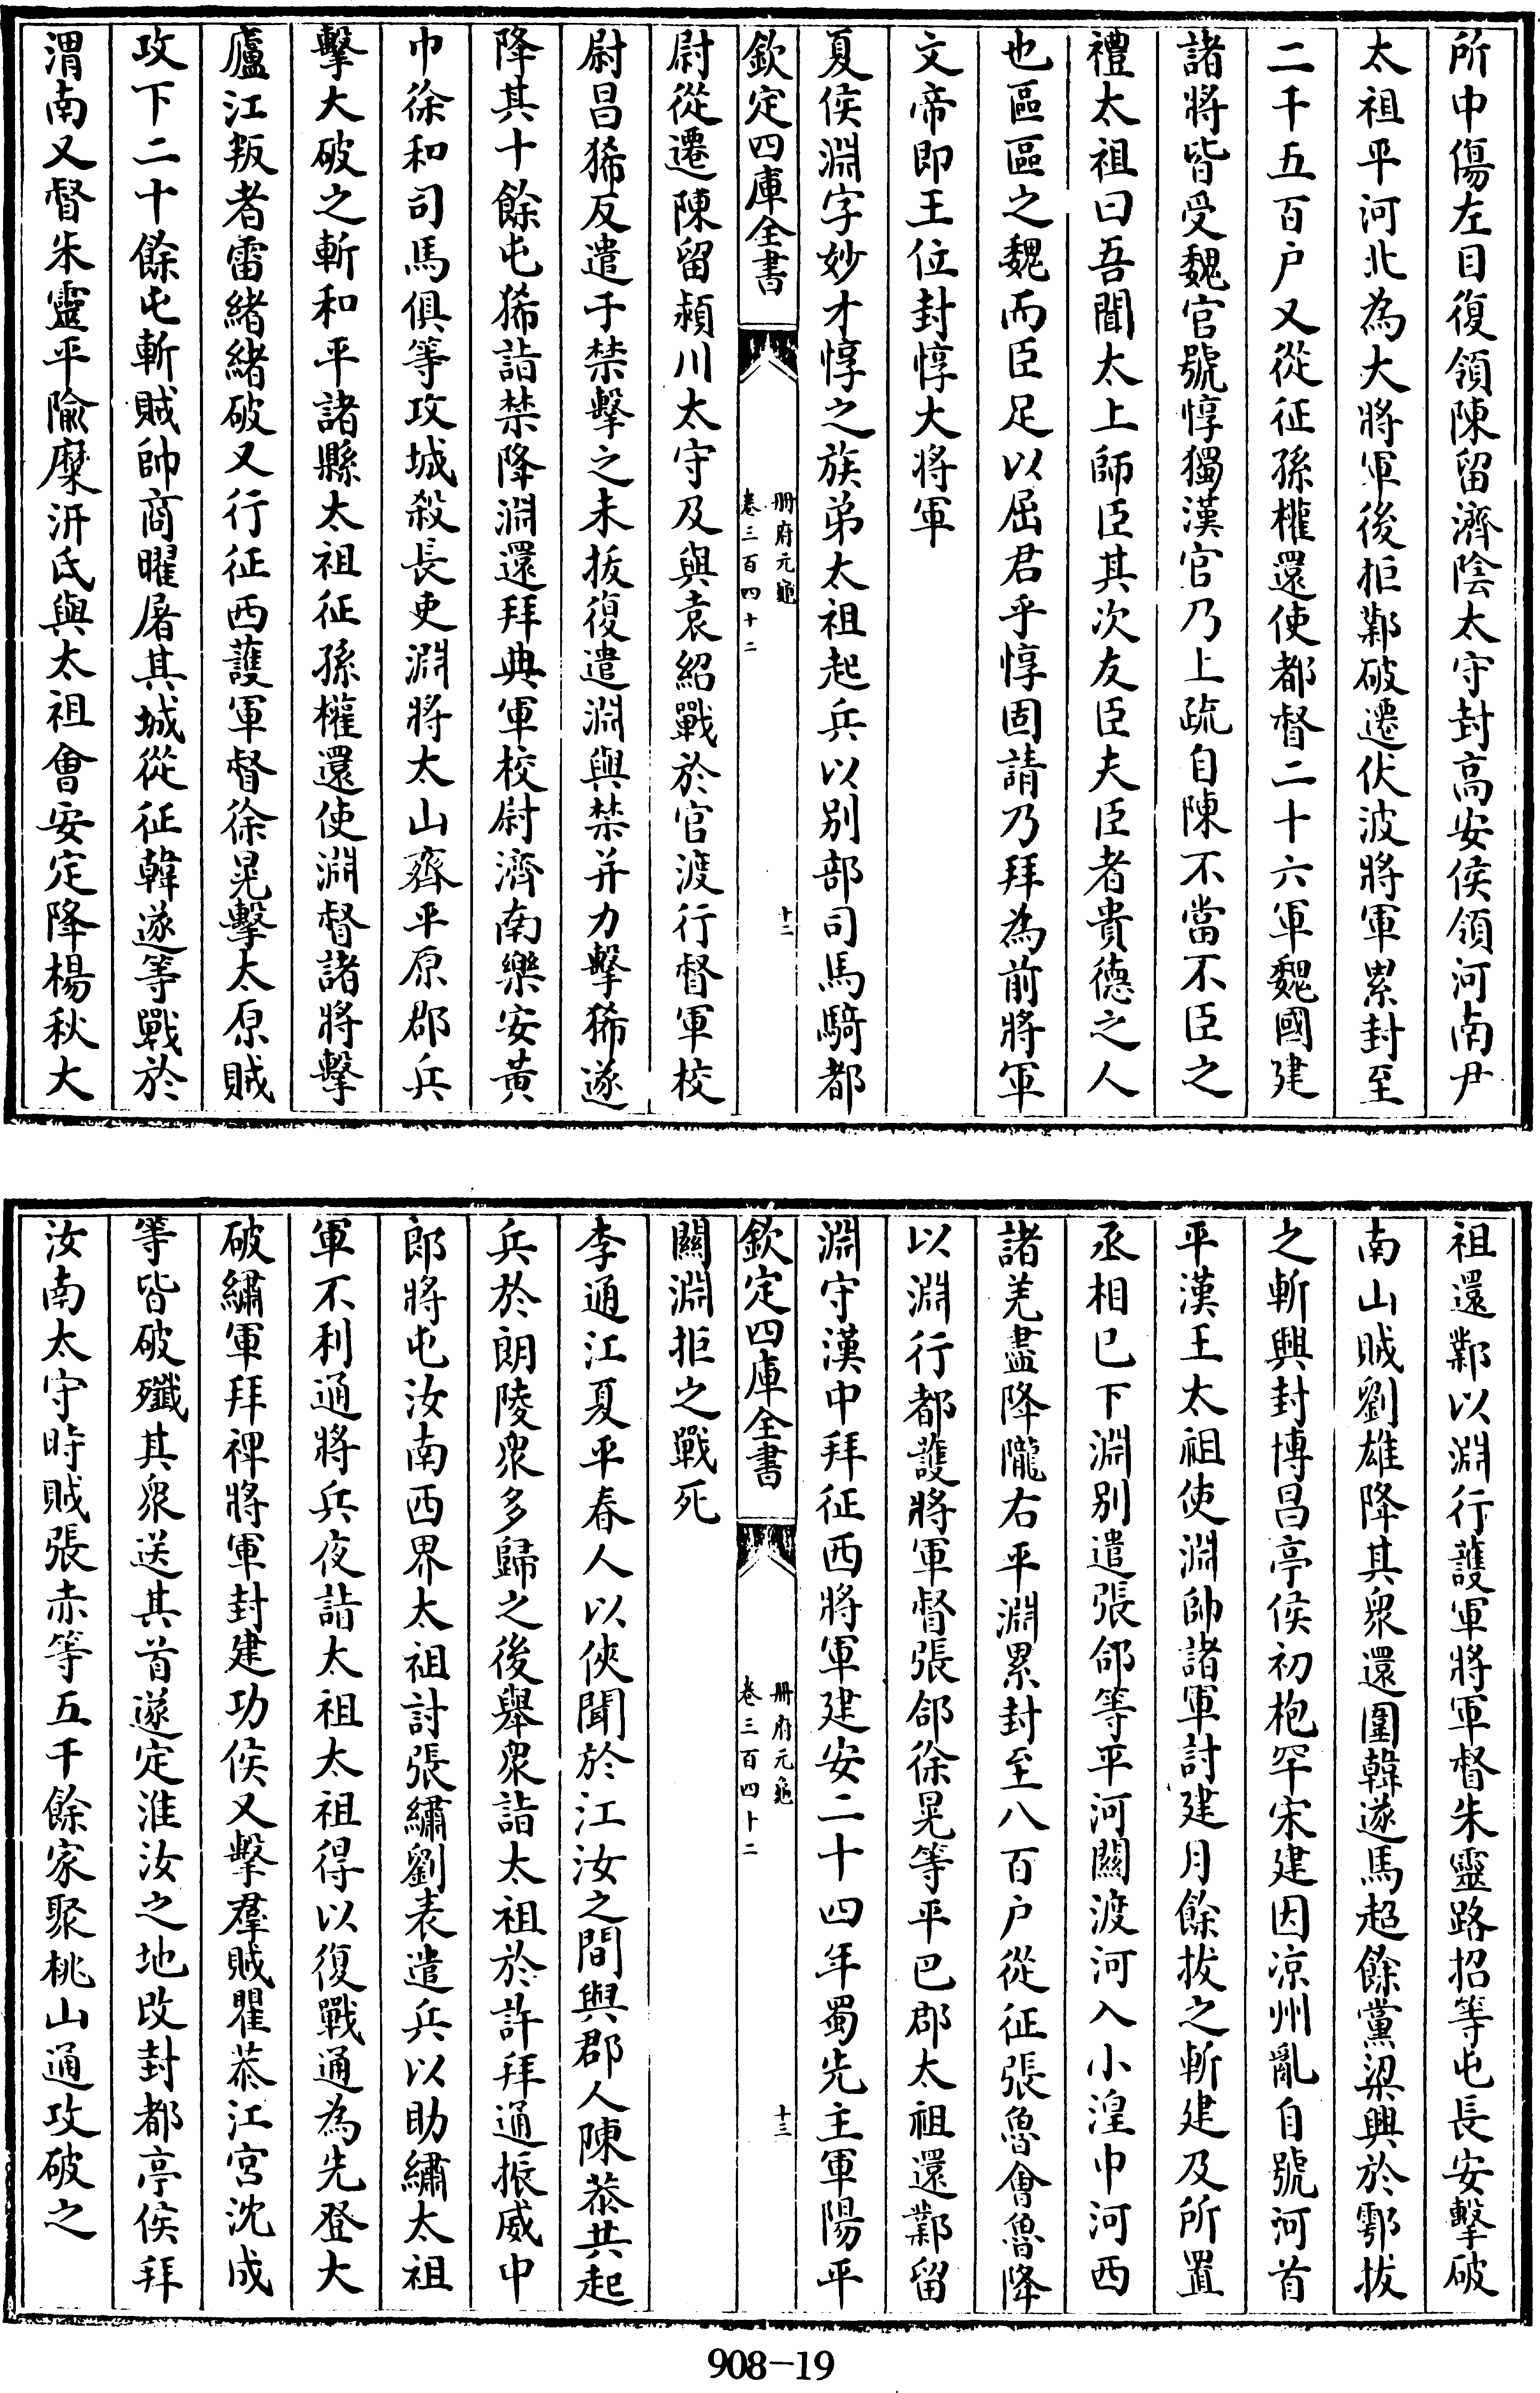 所中傷左目復領陳留濟陰太守封高安侯領河南尹
太祖平河北為大將軍後拒鄴破遷伏波將軍累封至
二千五百户又從征孫權還使都督二十六軍魏國建
諸將皆受魏官號惇獨漢官乃上疏自陳不當不臣之
禮太祖曰吾聞太上師臣其次友臣夫臣者貴德之人
也區區之魏而臣足以屈君乎惇固請乃拜為前將軍
文帝即王位封惇大將軍
夏侯淵字妙才惇之族弟太祖起兵以别部司馬騎都
欽定四庫全書
册府元龜
卷三百四十二
十二
尉從遷陳留潁川太守及與袁紹戰於官渡行督軍校
尉昌狶反遣于禁擊之未拔復遣淵與禁并力擊狶遂
降其十餘屯狶詣禁降淵還拜典軍校尉濟南樂安黄
巾徐和司馬俱等攻城殺長吏淵將太山齊平原郡兵
擊大破之斬和平諸縣太祖征孫權還使淵督諸將擊
廬江叛者雷緒緒破又行征西護軍督徐晃擊太原賊
攻下二十餘屯斬賊帥商曜屠其城從征韓遂等戰於
渭南又督朱靈平隃糜汧氐與太祖會安定降楊秋大
祖還鄴以淵行護軍將軍督朱靈路招等屯長安擊破
南山賊劉雄降其衆還圍韓遂馬超餘黨梁興於鄠拔
之斬興封博昌亭侯初枹罕宋建因凉州亂自號河首
平漢王太祖使淵帥諸軍討建月餘拔之斬建及所置
丞相已下淵别遣張郃等平河關渡河入小湟中河西
諸羌盡降隴右平淵累封至八百户從征張魯會魯降
以淵行都護將軍督張郃徐晃等平巴郡太祖還鄴留
淵守漢中拜征西將軍建安二十四年蜀先主軍陽平
欽定四庫全書
册府元龜
卷三百四十二
十三
關淵拒之戰死
李通江夏平春人以俠聞於江汝之間與郡人陳恭共起
兵於朗陵衆多歸之後舉衆詣太祖於許拜通振威中
郎將屯汝南西界太祖討張繡劉表遣兵以助繡太祖
軍不利通將兵夜詣太祖太祖得以復戰通為先登大
破繡軍拜裨將軍封建功侯又擊羣賊瞿恭江宮沈成
等皆破殲其衆送其首遂定淮汝之地改封都亭侯拜
汝南太守時賊張赤等五千餘家聚桃山通攻破之
908-19